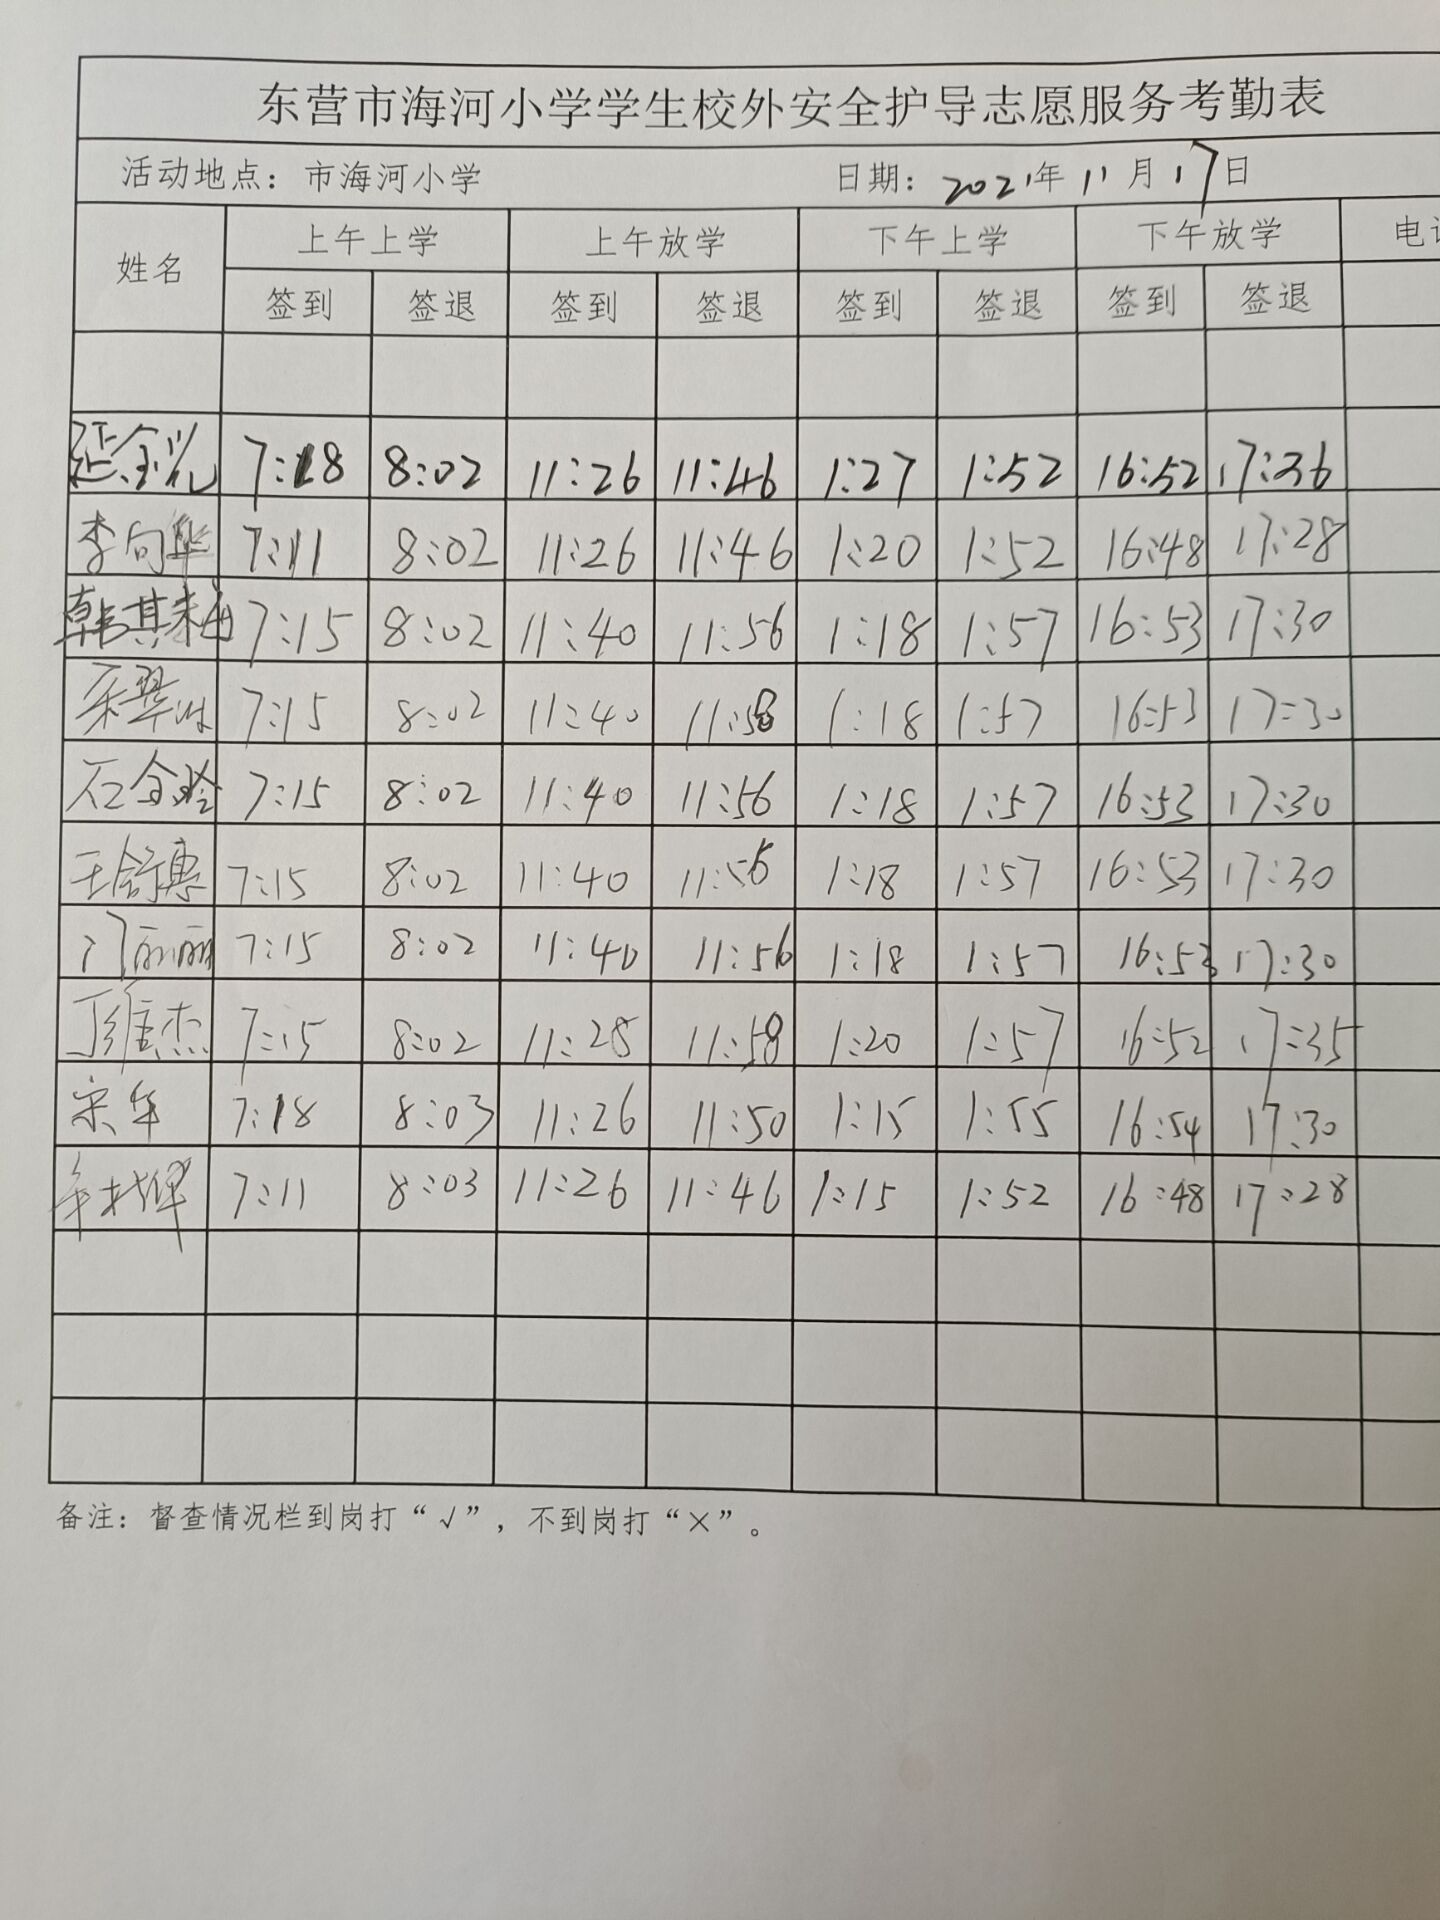 东营市海河小学学生校外安全护导志愿服务考勤表
活动地点：市海河小学 日期：2021年11月17日
姓名 上午上学 上午放学 下午上学 下午放学
签到 签退 签到 签退 签到 签退 签到 签退
7:18 8:02 11:26 11:46 1:27 1:52 16:52 17:36
李向华 7:11 8:02 11:26 11:46 1:20 1:52 16:48 17:28
韩其来 7:15 8:02 11:40 11:56 1:18 1:57 16:53 17:30
7:15 8:02 11:40 11:58 1:18 1:57 16:53 17:30
石金玲 7:15 8:02 11:40 11:56 1:18 1:57 16:53 17:30
王舒惠 7:15 8:02 11:40 11:56 1:18 1:57 16:53 17:30
门丽丽 7:15 8:02 11:40 11:56 1:18 1:57 16:53 17:30
丁维杰 7:15 8:02 11:28 11:58 1:20 1:57 16:52 17:35
宋年 7:18 8:03 11:26 11:50 1:15 1:55 16:54 17:30
7:11 8:03 11:26 11:46 1:15 1:52 16:48 17:28
备注：督查情况栏到岗打“√”，不到岗打“×”。